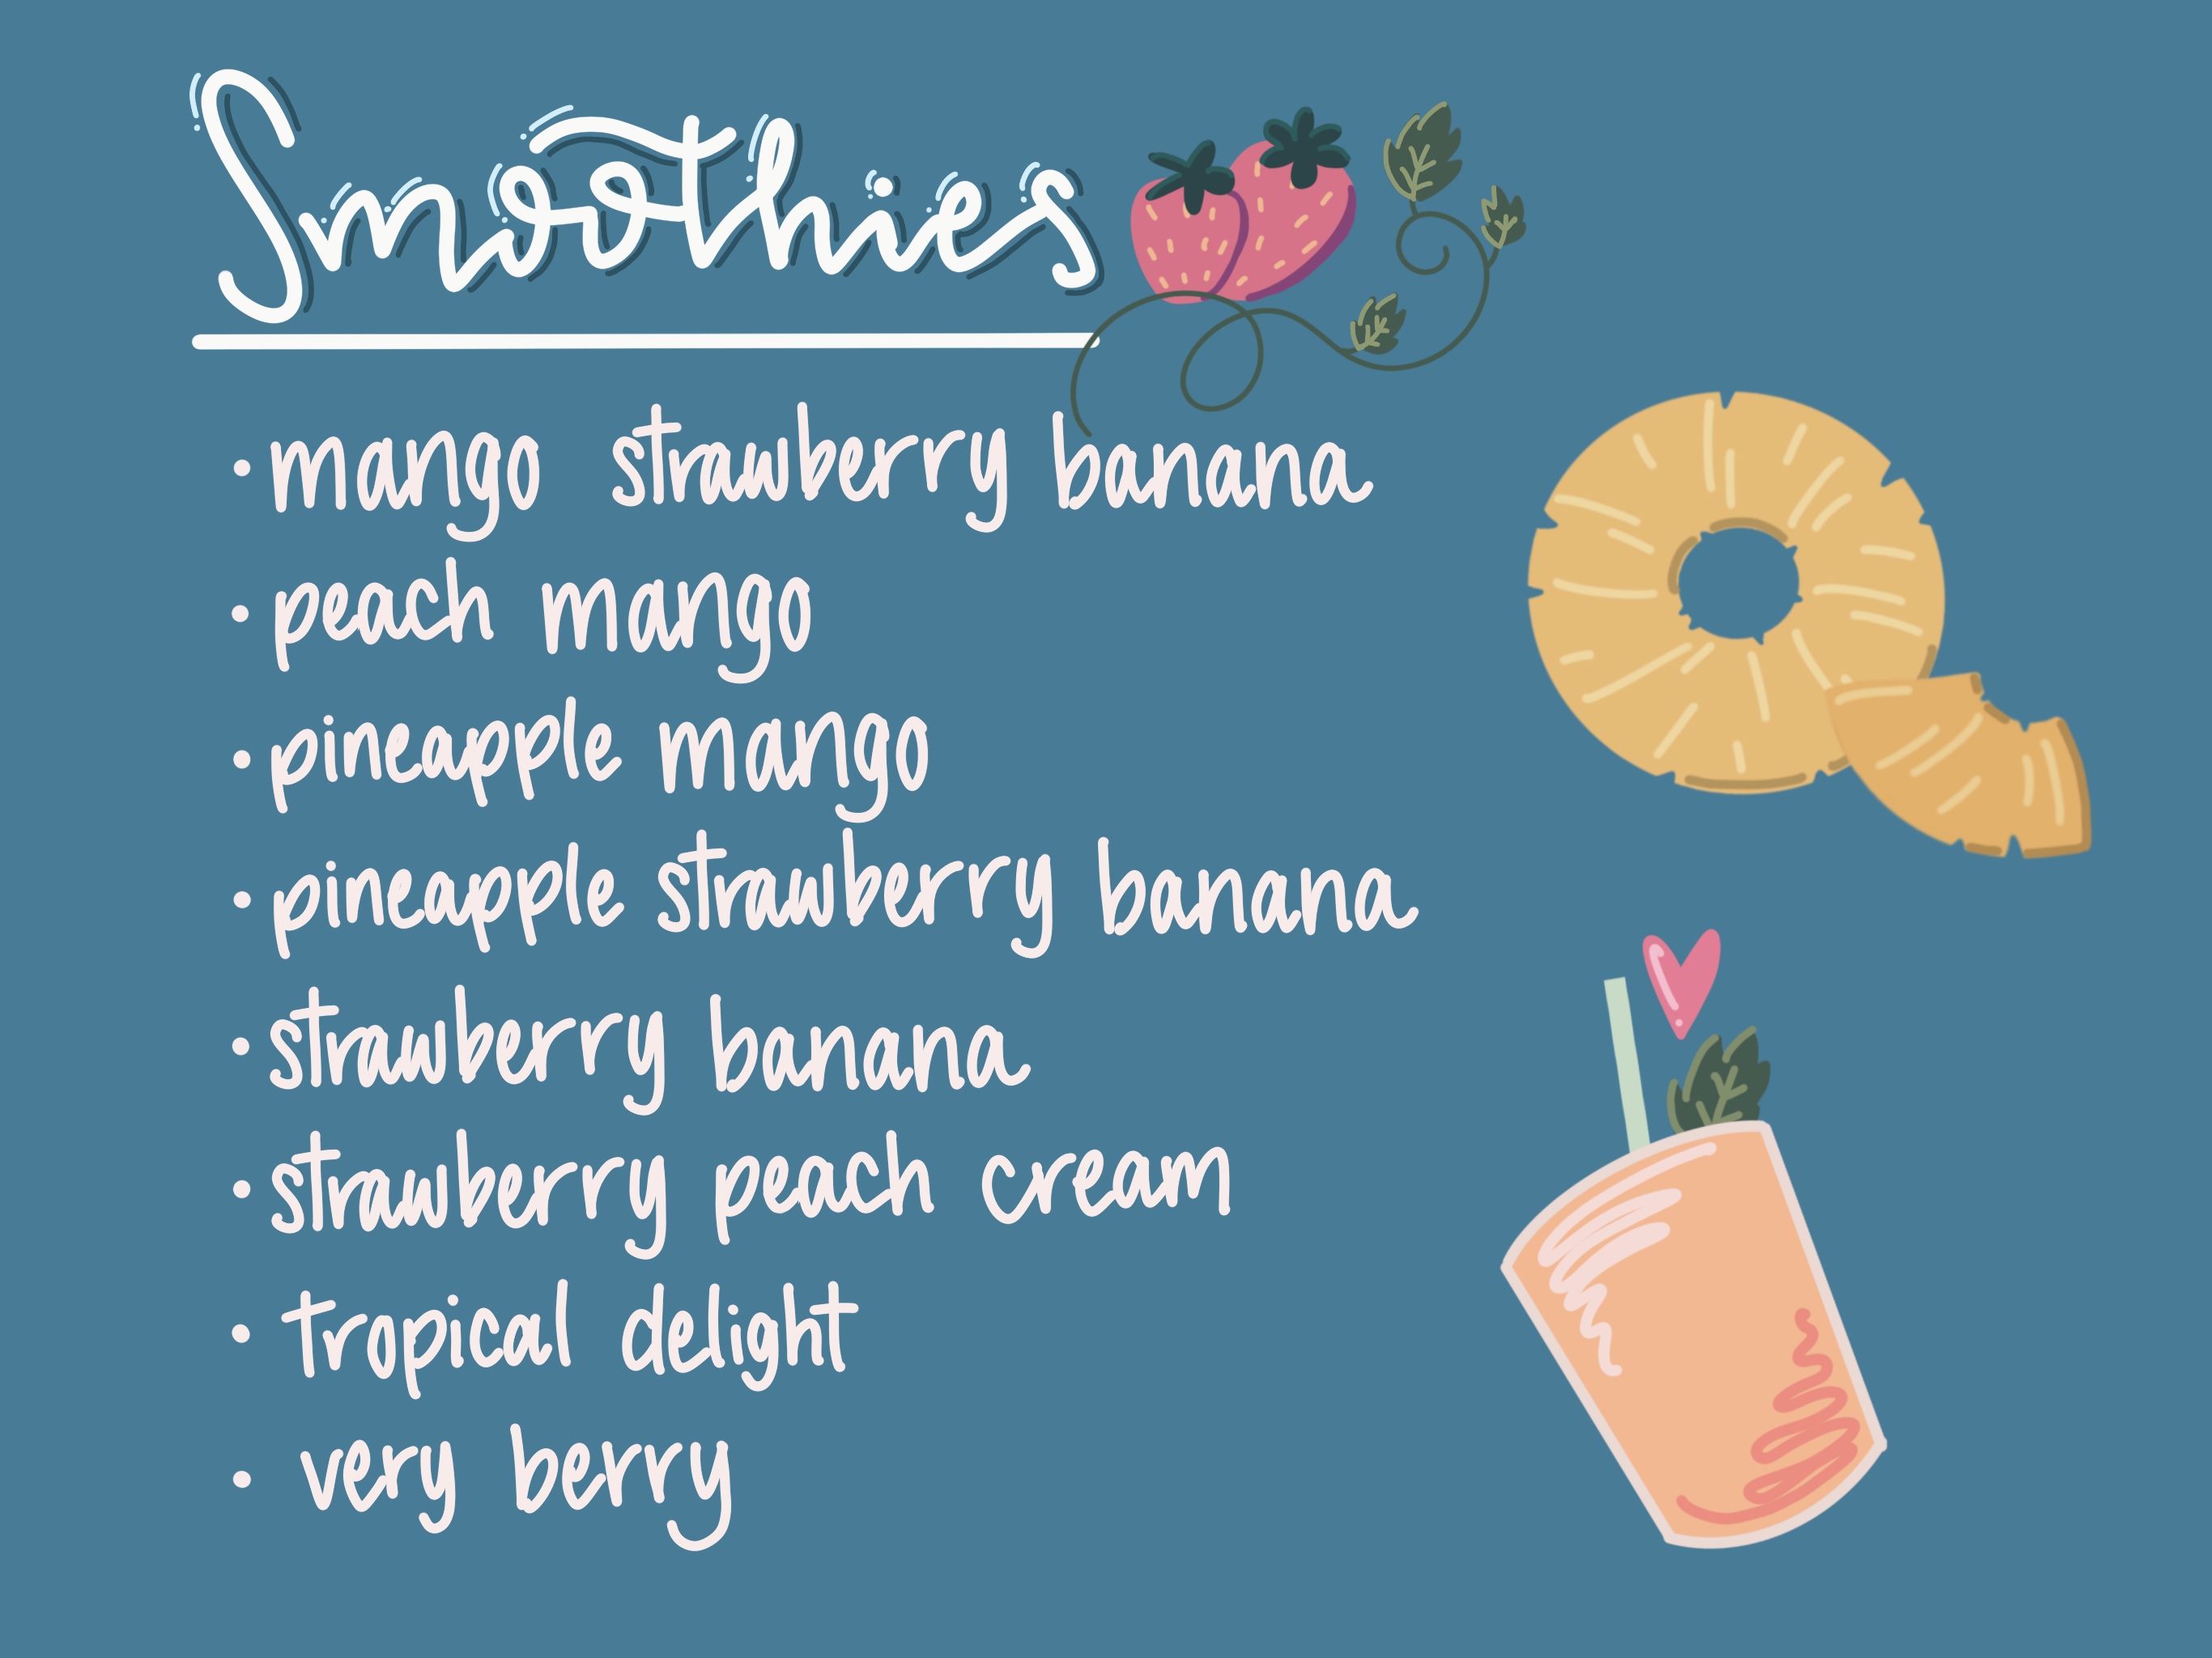 Smoothies
• mango strawberry banana
• peach mango
• pineapple mango
• pineapple strawberry banana
• strawberry banana
• strawberry peach cream
• tropical delight
• very berry